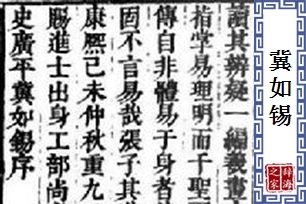 冀如锡
辭海
之家
讀其辨疑一編羲畫
指掌易理明而千聖
傳自非體易于身者
固不言易哉張子其
康熙己未仲秋重九
賜進士出身工部尚
史廣平冀如錫序